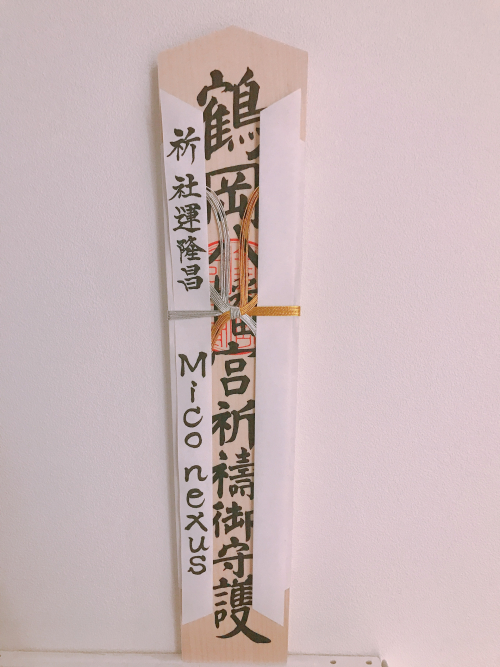 鶴岡八幡宮祈禱御守護
祈 社運隆昌
Mico nexus